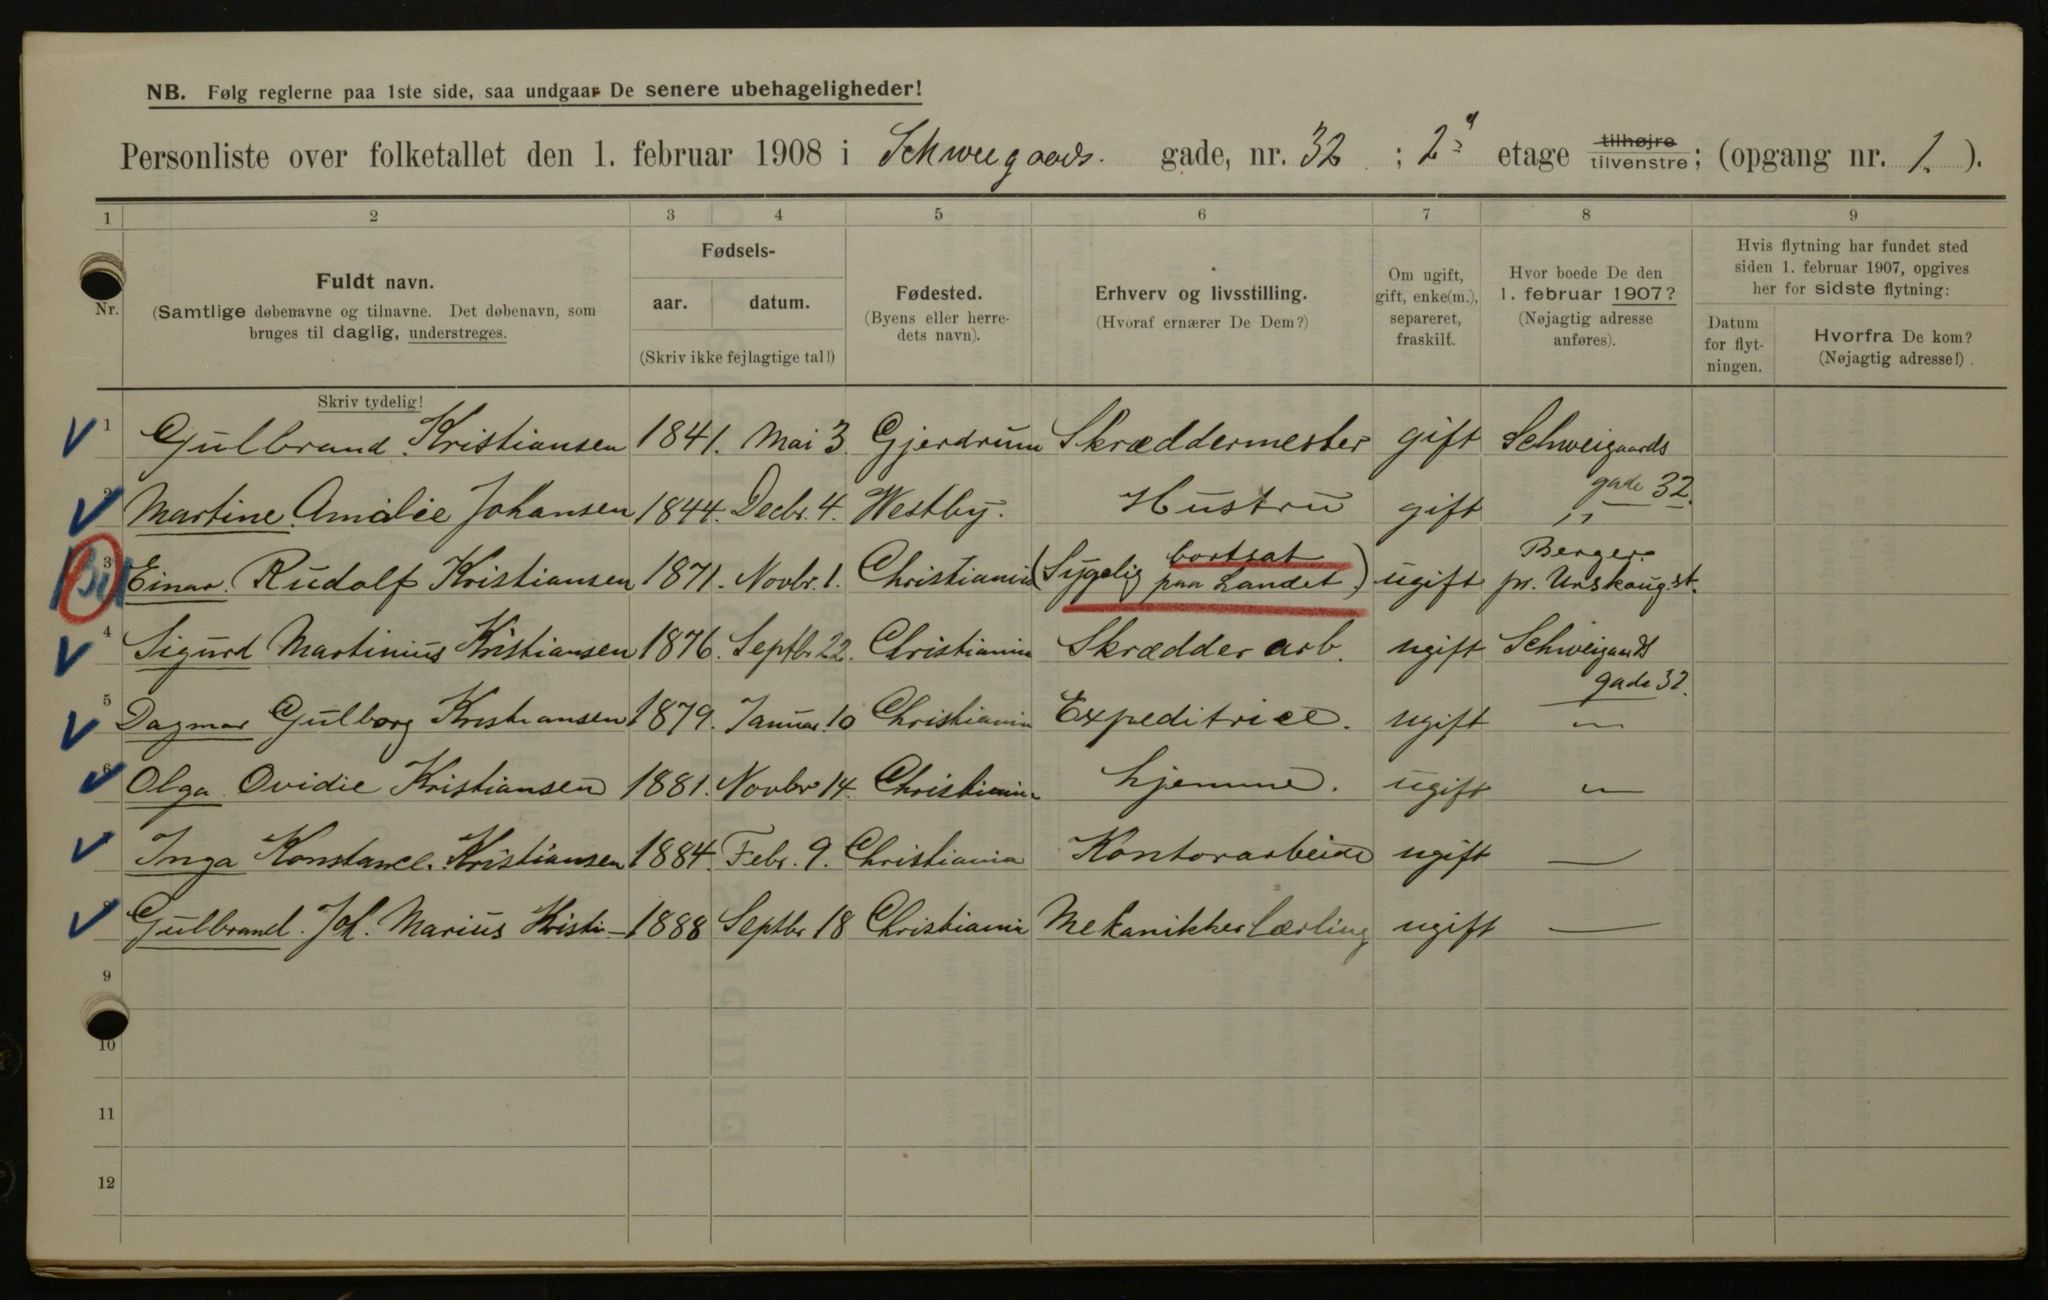 NB. Følg reglerne paa 1ste side, saa undgaar De senere ubehageligheder!
Personliste over folketallet den 1. februar 1908 i Schweigaards. gade, nr. 32 ; 2 etage tilhøjre tilvenstre; (opgang nr. 1. ).
1 2 3 4 5 6 7 8 9
Nr.
Fuldt navn.
(Samtlige døbenavne og tilnavne. Det døbenavn, som
bruges til daglig, understreges.
Skriv tydelig!
Fødsels-
aar. datum.
(Skriv ikke fejlagtige tal!)
Fødested.
(Byens eller herre-
dets navn).
Erhverv og livsstilling.
(Hvoraf ernærer De Dem?)
Om ugift,
gift, enke(m.),
separeret,
fraskilt.
Hvor boede De den
1. februar 1907?
(Nøjagtig adresse
anføres).
Hvis flytning har fundet sted
siden 1. februar 1907, opgives
her for sidste flytning:
Datum
for flyt-
ningen.
Hvorfra De kom?
(Nøjagtig adresse!).
1 Gulbrand Kristiansen 1841. Mai 3. Gjerdrum Skræddermester gift Schweigaards gade 32.
2 Martine Amalie Johansen 1844. Decbr. 4. Westby. Hustru gift "
3 Einar Rudolf Kristiansen 1871. Novbr. 1. Christiania (Sygelig bortsat paa Landet) ugift Berger pr. Urskougst.
4 Sigurd Martinius Kristiansen 1876. Septbr 22. Christiania Skrædder arb. ugift Schweigaards gade 32.
5 Dagmar Gulborg Kristiansen 1879. Januar 10 Christiania Expeditrice. ugift "
6 Olga Ovidie Kristiansen 1881. Novbr 14. Christiania hjemme. ugift "
Inga Konstance. Kristiansen 1884. Febr. 9. Christiania Kontorarbeide ugift —
8 Gulbrand. Joh. Marius Kristi— 1888 Septbr 18 Christiania Mekanikkerlærling ugift —
9
10
11
12